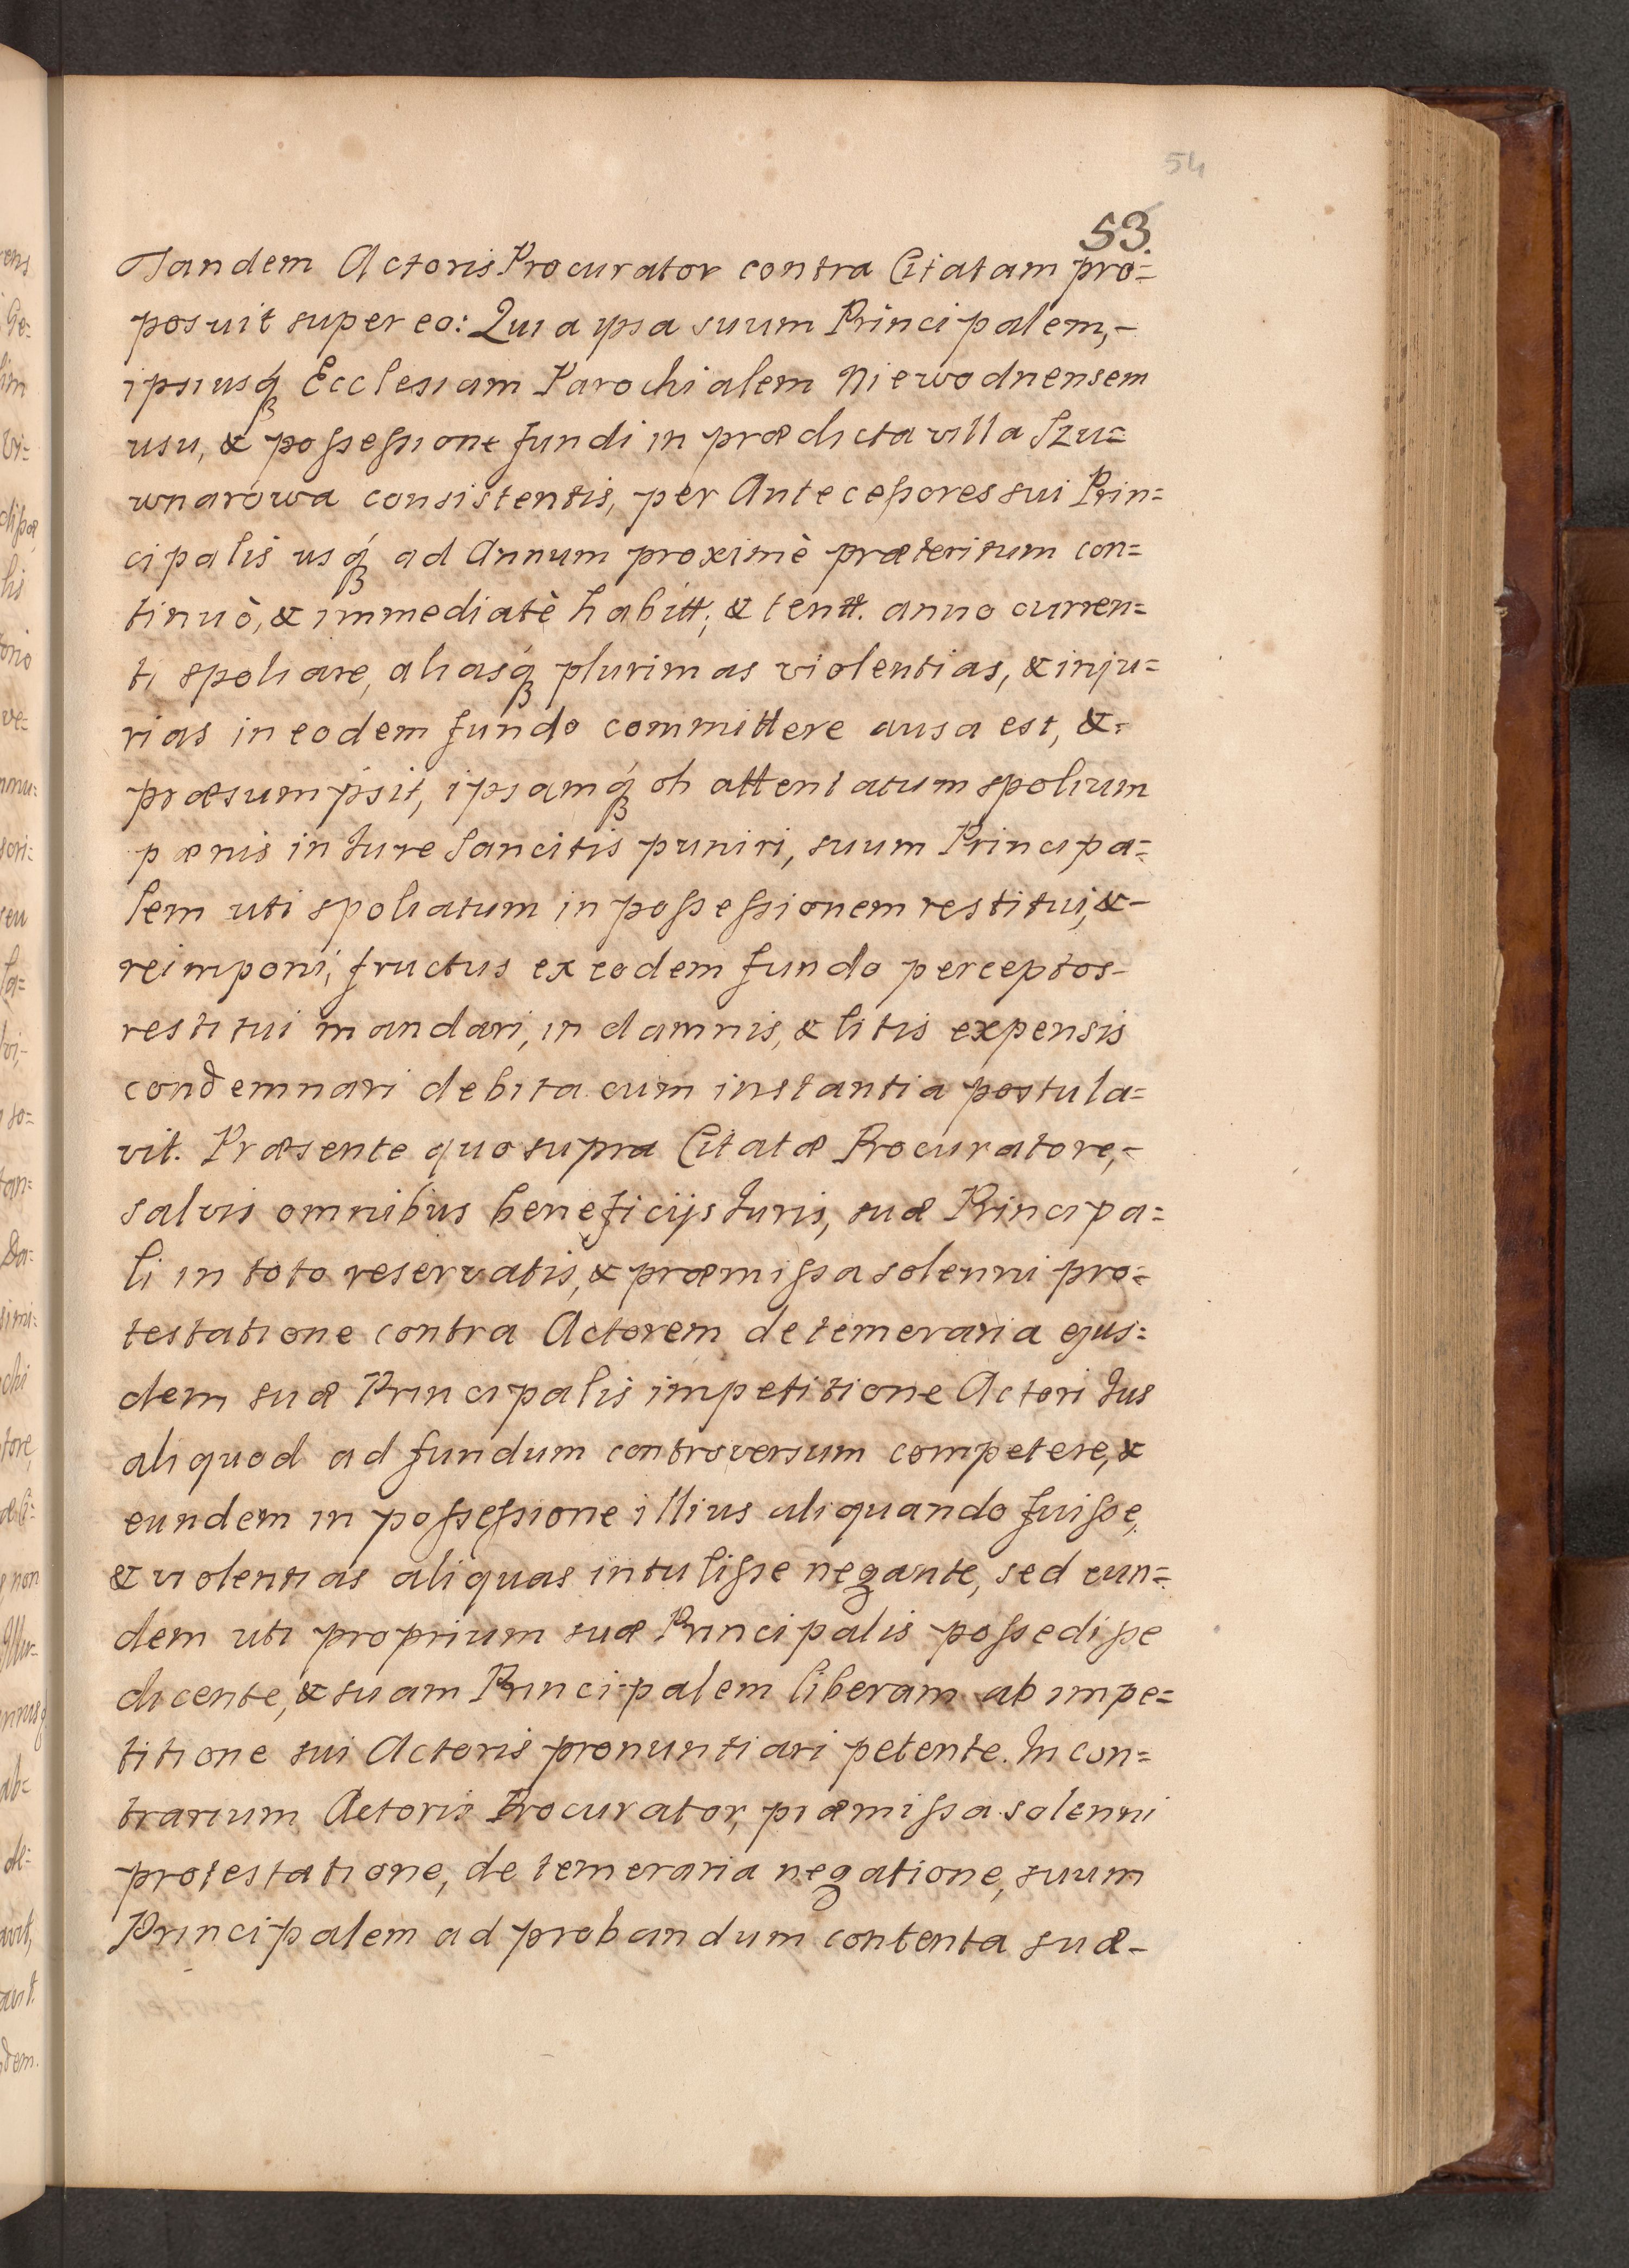 54
53.
Tandem Actoris Procurator contra Citatam pro=
posuit super eo: Quia ipsa suum Principalem,-
ipsiusq́ꝫ Ecclesiam Parochialem Niewodnensem
usu, & possessione fundi in prædicta villa Szu=
wnarowa consistentis, per Antecessores sui Prin=
cipalis usq́ꝫ ad Annum proximè præteritum con=
tinuò, & immediatè habitt; & tentt. anno curren=
ti spoliare, aliasq́ꝫ plurimas violentias, & inju=
rias in eodem fundo committere ausa est, &=
præsumpsit, ipsamq́ꝫ ob attentatum spolium
pænis in Jure Sancitis puniri, suum Principa=
lem uti spoliatum in possessionem restitui, &-
reimponi, fructus ex eodem fundo perceptos-
restitui mandari, in damnis, & litis expensis
condemnari debita cum instantia postula=
vit. Præsente quo supra Citatæ Procuratore,-
salvis omnibus beneficijs Juris, suæ Principa=
li in toto reservatis, & præmissa solenni pro=
testatione contra Actorem de temeraria ejus=
dem suæ Principalis impetitione Actori Jus
aliquod ad fundum controversum competere, &
eundem in possessione illius aliquando fuisse,
& violentias aliquas intulisse negante, sed eun=
dem uti proprium suæ Principalis possedisse
dicente, & suam Principalem liberam ab impe=
titione sui Actoris pronuntiari petente. In con=
trarium Actoris Procurator, præmissa solenni
protestatione, de temeraria negatione, suum
Principalem ad probandum contenta suæ-